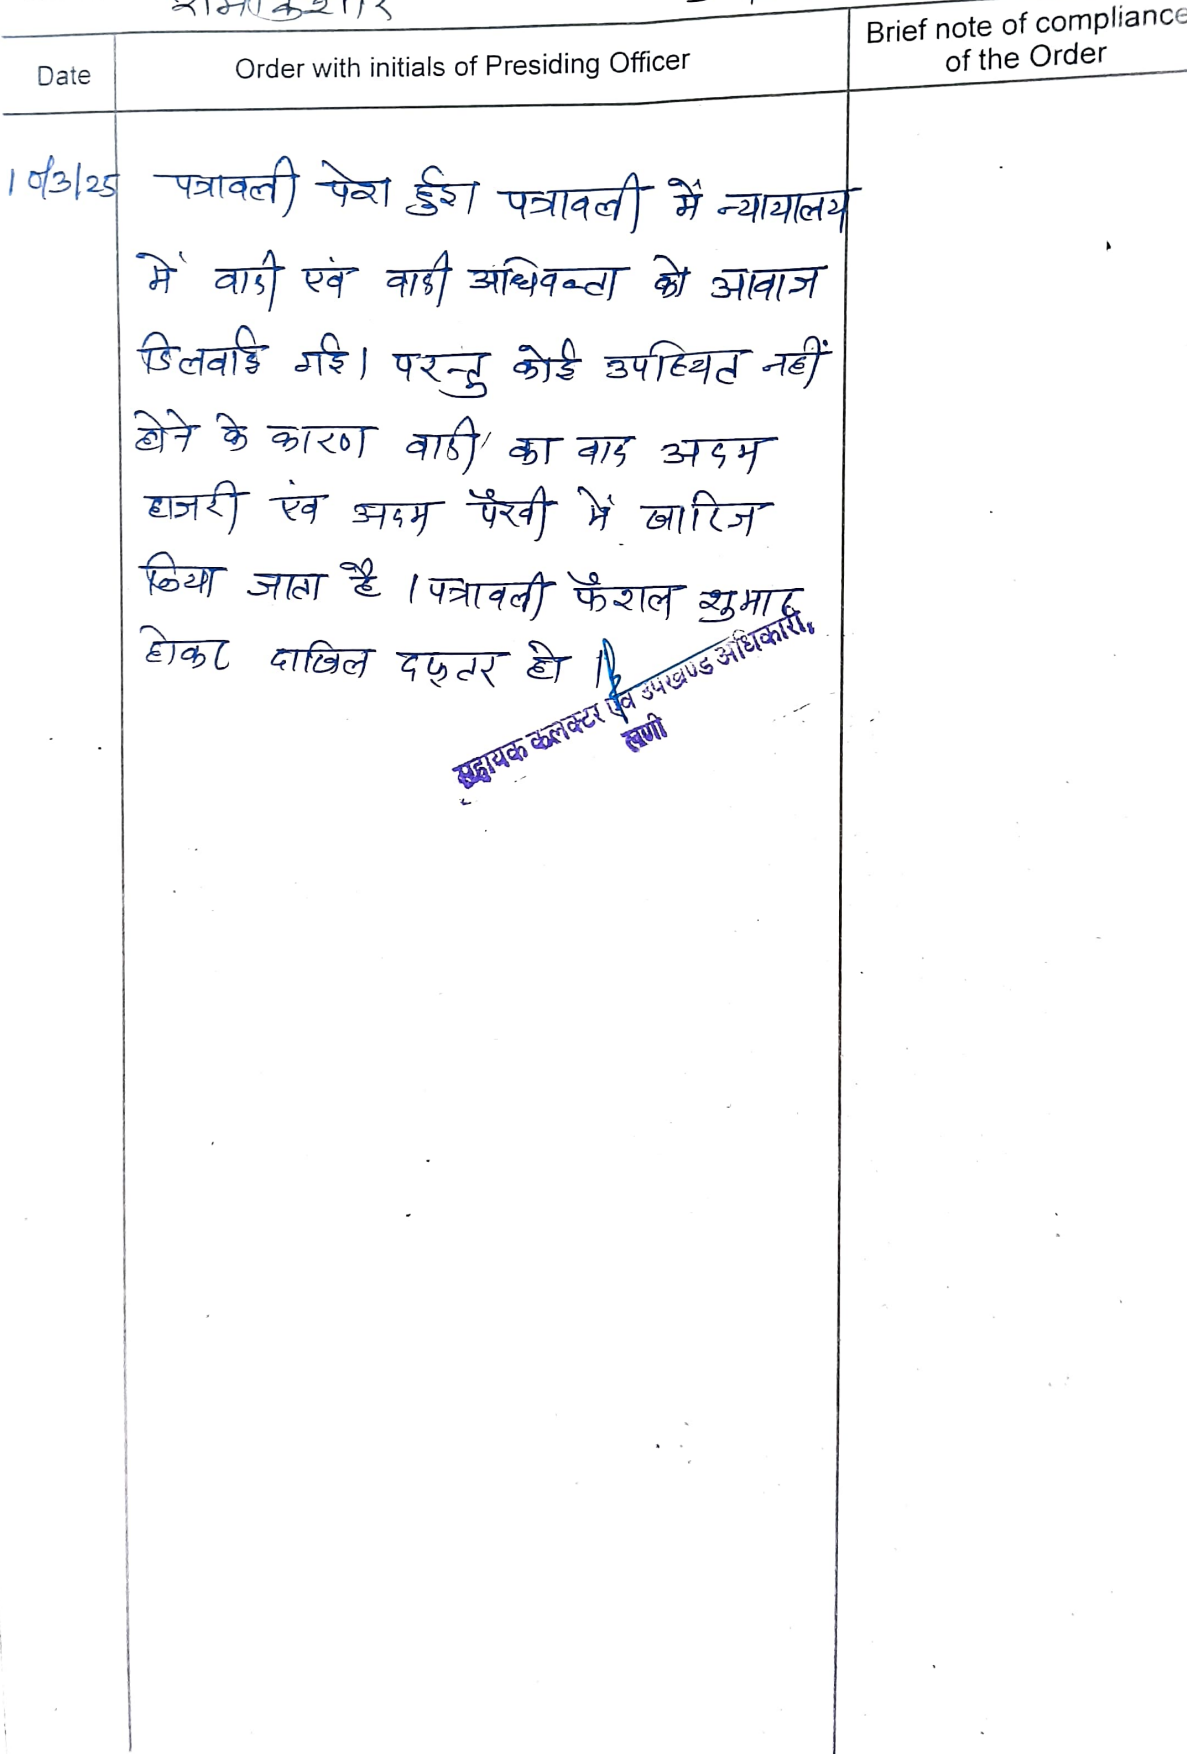 Date
Order with initials of Presiding Officer
Brief note of compliance
of the Order
10/3/25 पत्रावली पेश हुई। पत्रावली में न्यायालय
में वादी एवं वादी अधिवक्ता को आवाज
दिलवाई गई। परन्तु कोई उपस्थित नहीं
होने के कारण वादी का वाद अदम
हाजरी एंव अदम पैरवी में खारिज
किया जाता है। पत्रावली फैशल शुमार
होकर दाखिल दफ्तर हो।
सहायक कलक्टर एंव उपखण्ड अधिकारी,